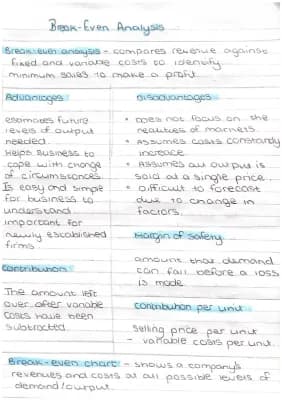 Break-Even Analysis
Break-even analysis - compares revenue against
fixed and variable costs to identify
minimum sales to make a profit.
Advantages
estimates future
levels of output
needed.
Helps business to
cope with change
of circumstances.
Is easy and simple
for business to
understand
important for
newly established
firms.
Disadvantages
• Does not focus on the
realities of markets.
• Assumes costs constantly
increase.
• Assumes all output is
sold at a single price.
• Difficult to forecast
due to change in
factors.
Margin of safety
amount that demand
can fall before a loss
is made.
Contribution
The amount left
over after variable
costs have been
subtracted.
Contribution per unit
Selling price per unit
- variable costs per unit.
Break-even chart - shows a company's
revenues and costs at all possible levels of
demand/output.